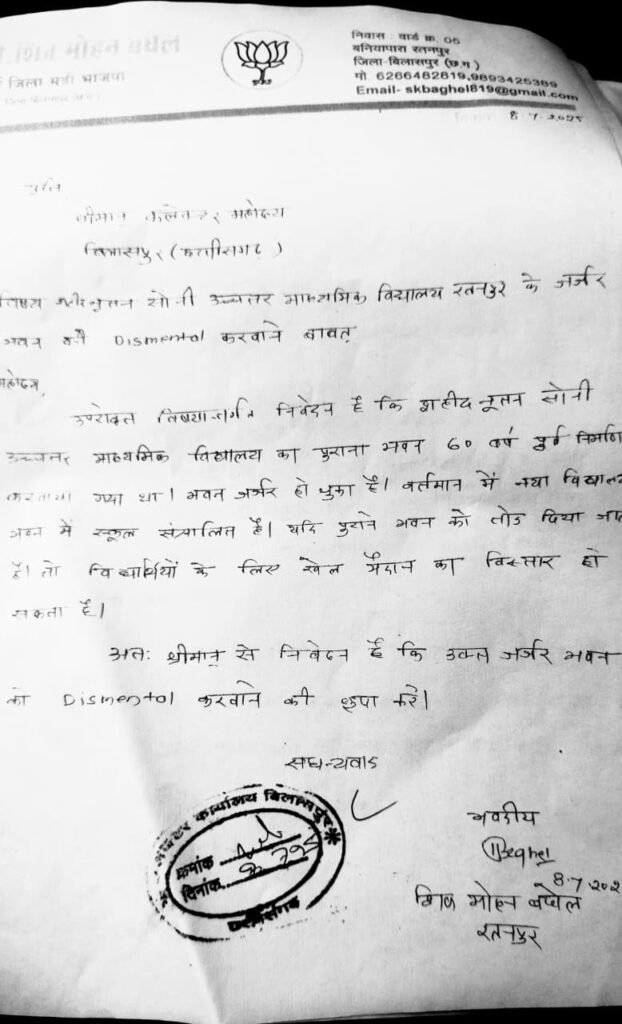 निवास : वार्ड क्र. 06
बनियापारा रतनपुर
जिला-बिलासपुर (छ.ग.)
जिला मंत्री भाजपा
मो. 6266482819,9893425389
Email- skbaghel819@gmail.com
8.7.2025
प्रति
श्रीमान् कलेक्टर महोदय
बिलासपुर (छत्तीसगढ़)
विषय शहीद नूतन सोनी उच्चतर माध्यमिक विद्यालय रतनपुर के जर्जर
भवन को Dismental करवाने बाबत्
महोदय,
उपरोक्त विषयान्तर्गत निवेदन है कि शहीद नूतन सोनी
उच्चतर माध्यमिक विद्यालय का पुराना भवन 60 वर्ष पूर्व निर्माण
करवाया गया था। भवन जर्जर हो चुका है। वर्तमान में नया विद्यालय
भवन में स्कूल संचालित है। यदि पुराने भवन को तोड दिया जाता
है। तो विद्यार्थियों के लिए खेल मैदान का विस्तार हो
सकता है।
अतः श्रीमान् से निवेदन है कि उक्त जर्जर भवन
को Dismental करवाने की कृपा करें।
सधन्यवाद
भवदीय
Baghel
8.7.202
शिव मोहन बघेल
रतनपुर
कलेक्टर कार्यालय बिलासपुर
क्रमांक
दिनांक
छत्तीसगढ़